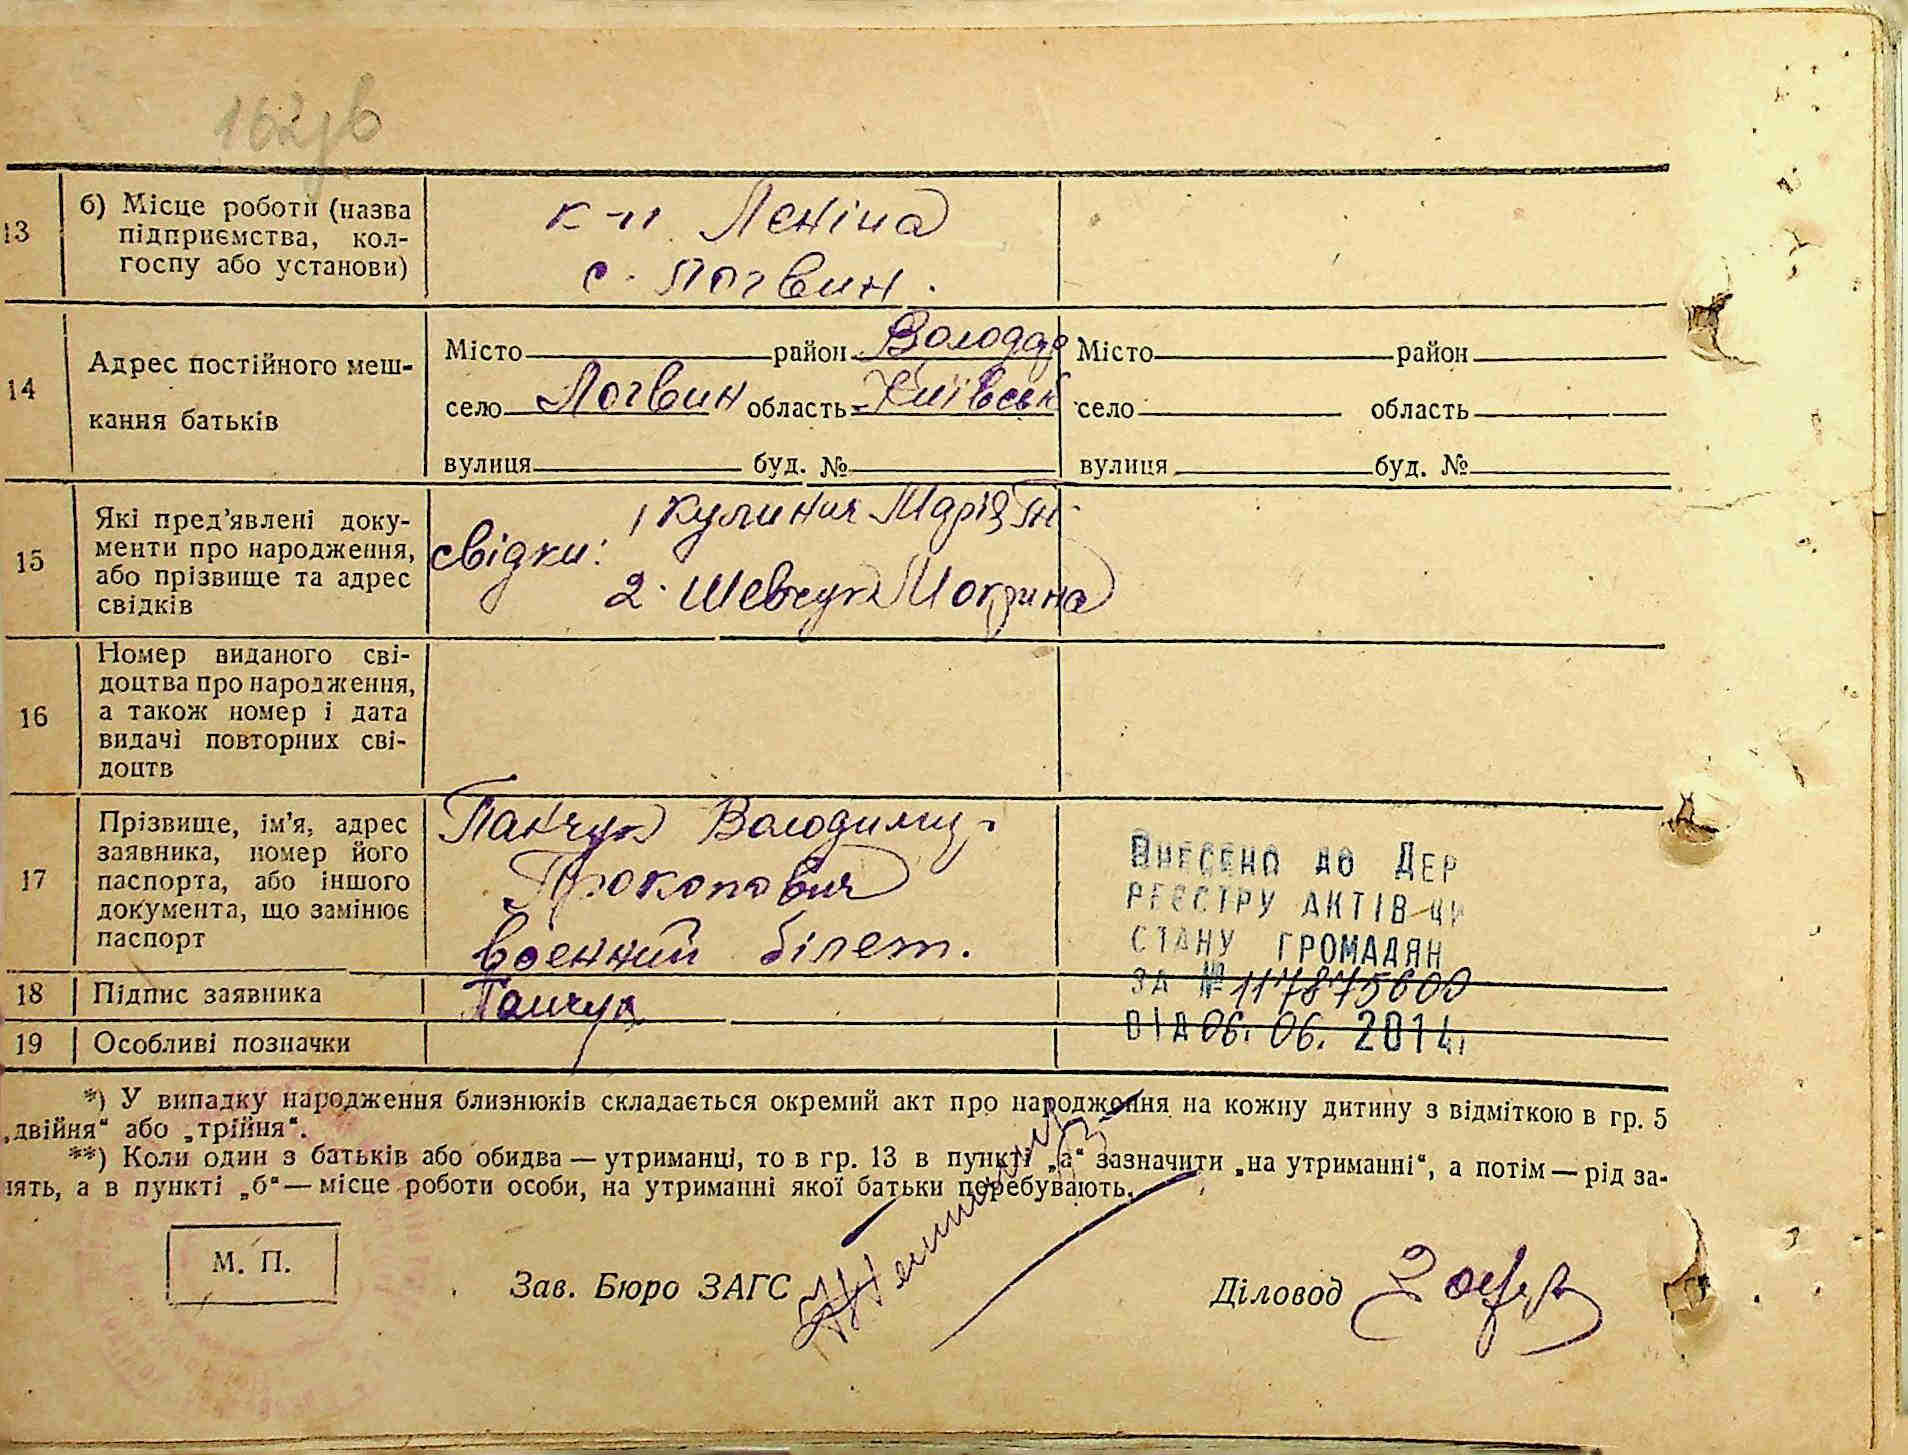 162зв
13
б) Місце роботи (назва
підприємства, кол-
госпу або установи)
к-п Леніна
с. Логвин.
14
Адрес постійного меш-
кання батьків
Місто район Володар Місто район
село Логвин область Київськ село область
вулиця буд. № вулиця буд. №
15
Які пред'явлені доку-
менти про народження,
або прізвище та адрес
свідків
свідки: 1 Кулинич Марія
2. Шевчук Мокрина
16
Номер виданого сві-
доцтва про народження,
а також номер і дата
видачі повторних сві-
доцтв
17
Прізвище, ім'я, адрес
заявника, номер його
паспорта, або іншого
документа, що замінює
паспорт
Панчук Володимир
Прокопович
военний білет.
ВНЕСЕНО ДО ДЕР
РЕЄСТРУ АКТІВ ЦИ
СТАНУ ГРОМАДЯН
ЗА № 117875600
ВІД 06.06.2014.
18 Підпис заявника Панчук
19 Особливі позначки
*) У випадку народження близнюків складається окремий акт про народження на кожну дитину з відміткою в гр. 5
„двійня“ або „трійня“.
**) Коли один з батьків або обидва — утриманці, то в гр. 13 в пункті „а“ зазначити „на утриманні“, а потім — рід за-
нять, а в пункті „б“ — місце роботи особи, на утриманні якої батьки перебувають.
М. П.
Зав. Бюро ЗАГС
Діловод